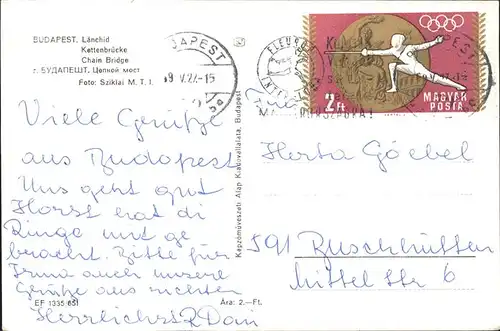 BUDAPEST, Lánchíd
Kettenbrücke
Chain Bridge
г. БУДАПЕШТ, Цепной мост
Foto: Sziklai M. T. I.
Viele Grüße
aus Budapest
Uns geht gut
Horst hat di
Ringe mit ge
bracht. Bitte für
Irma auch unsere
Grüße aus richten
Herrlichst
EF 1335/651
Ára: 2.- Ft.
Képzőművészeti Alap Kiadóvállalata, Budapest
BUDAPEST
2 Ft
MAGYAR
POSTA
Herta Göebel
591 Buschhütten
Mittel Str 6